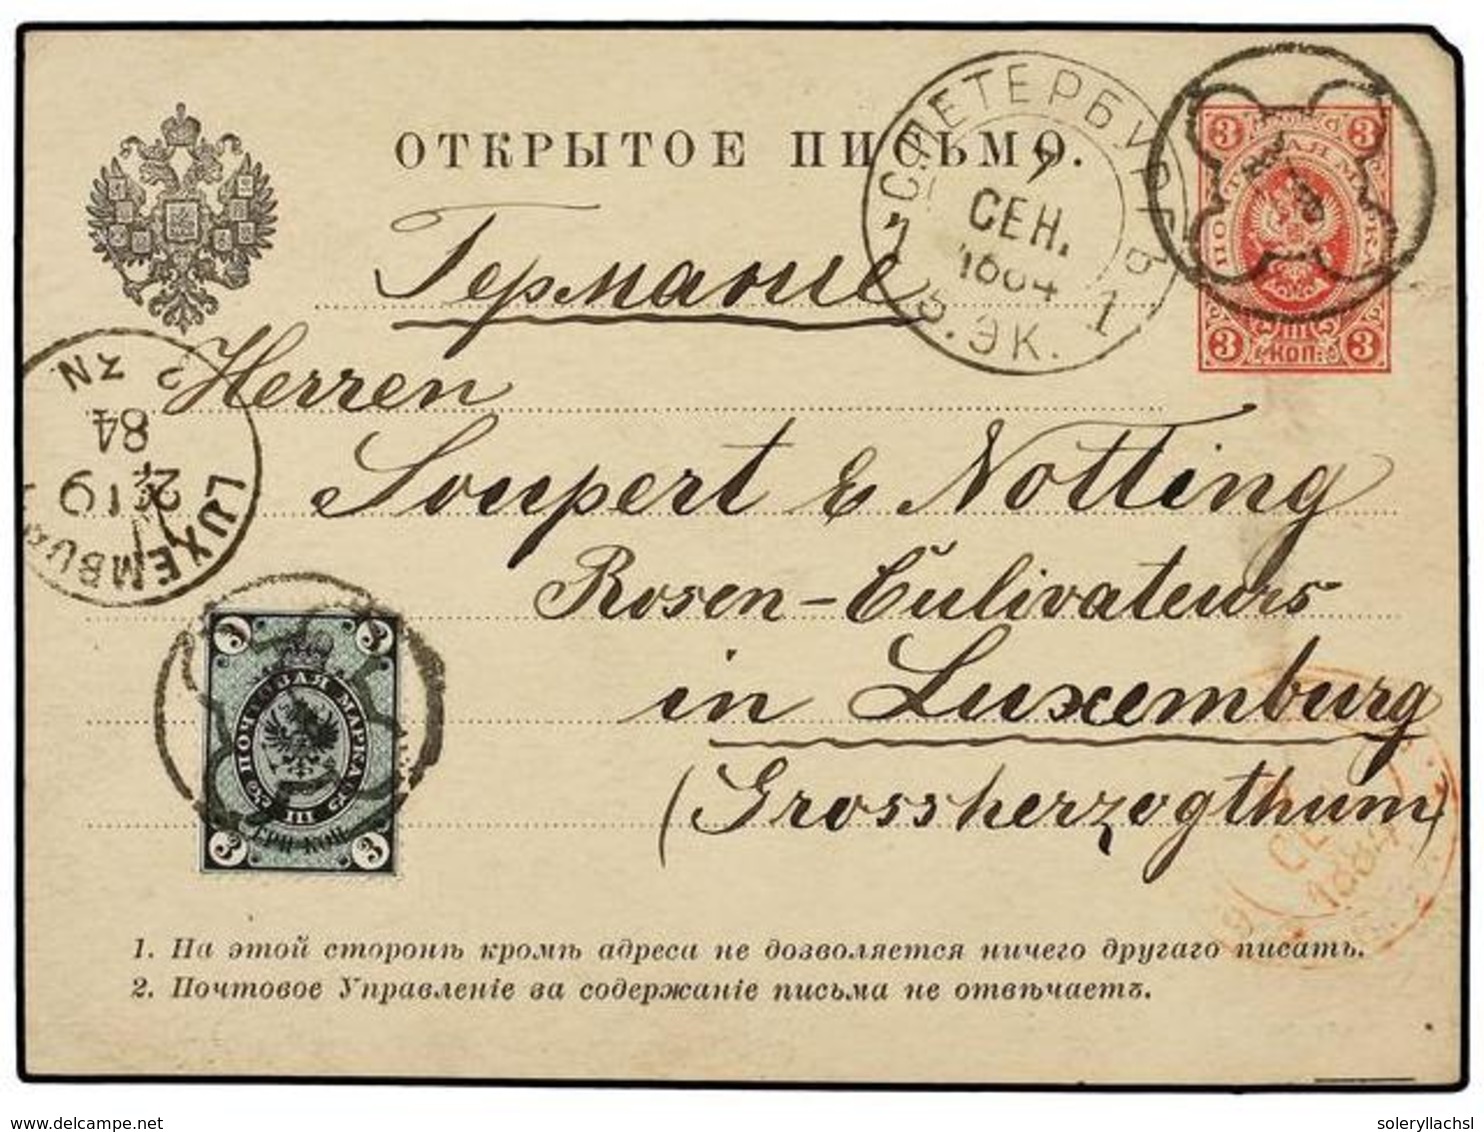 ОТКРЫТОЕ ПИСЬМО.
С.ПЕТЕРБУРГЪ
7
СЕН.
1884
5.ЭК. 1
3 3
ПОЧТОВАЯ МАРКА
3 КОП. 3
Германіе
Herren
Soupert & Notting
Rosen-Culivateurs
in Luxemburg
(Grossherzogthum)
LUXEMBURG
19
84
2 3N
3 3
ПОЧТОВАЯ МАРКА
III
3 ТРИ КОП. 3
СЕН
1884
1. На этой сторонѣ кромѣ адреса не дозволяется ничего другаго писать.
2. Почтовое Управленіе за содержаніе письма не отвѣчаетъ.
www.delcampe.net
soleryllachsl